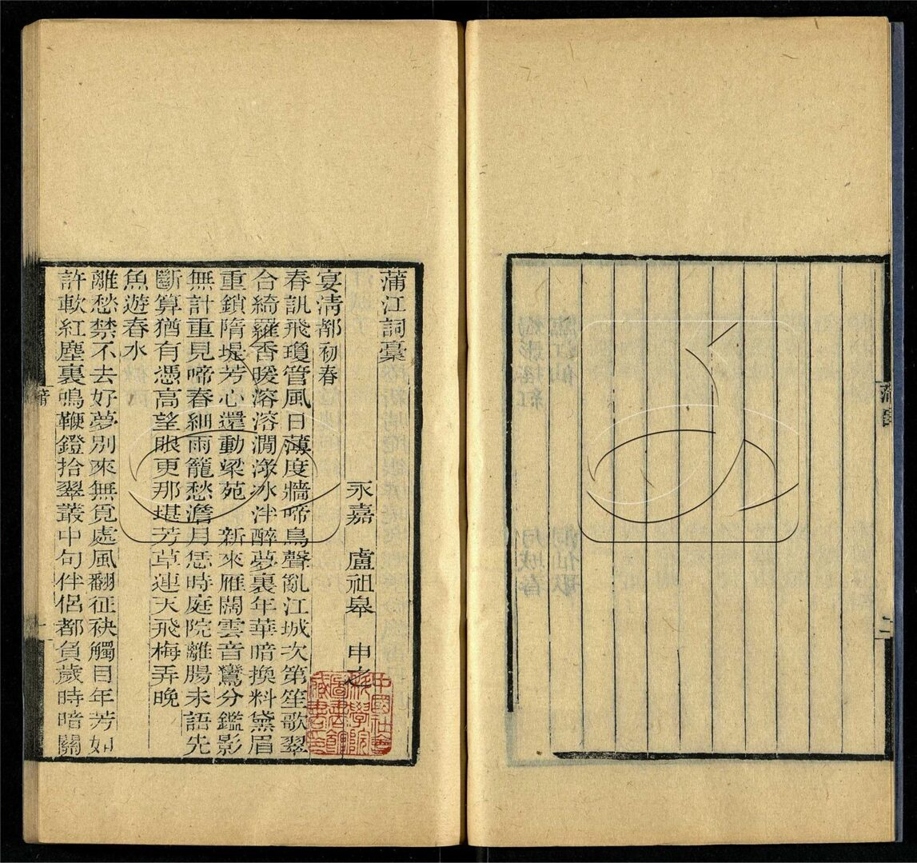 蒲江詞稾
永嘉 盧祖皋 申之
宴清都初春
春訊飛瓊管風日薄度牆啼鳥聲亂江城次第笙歌翠
合綺羅香暖溶溶澗淥冰泮醉夢裏年華暗換料黛眉
重鎖隋堤芳心還動梁苑 新來雁闊雲音鸞分鑑影
無計重見啼春細雨籠愁澹月恁時庭院離腸未語先
斷算猶有憑高望眼更那堪芳草連天飛梅弄晚
魚遊春水
離愁禁不去好夢別來無覓處風翻征袂觸目年芳如
許軟紅塵裏鳴鞭鐙拾翠叢中句伴侶都負歲時暗關
中國社會
科學院
圖書館
藏書印